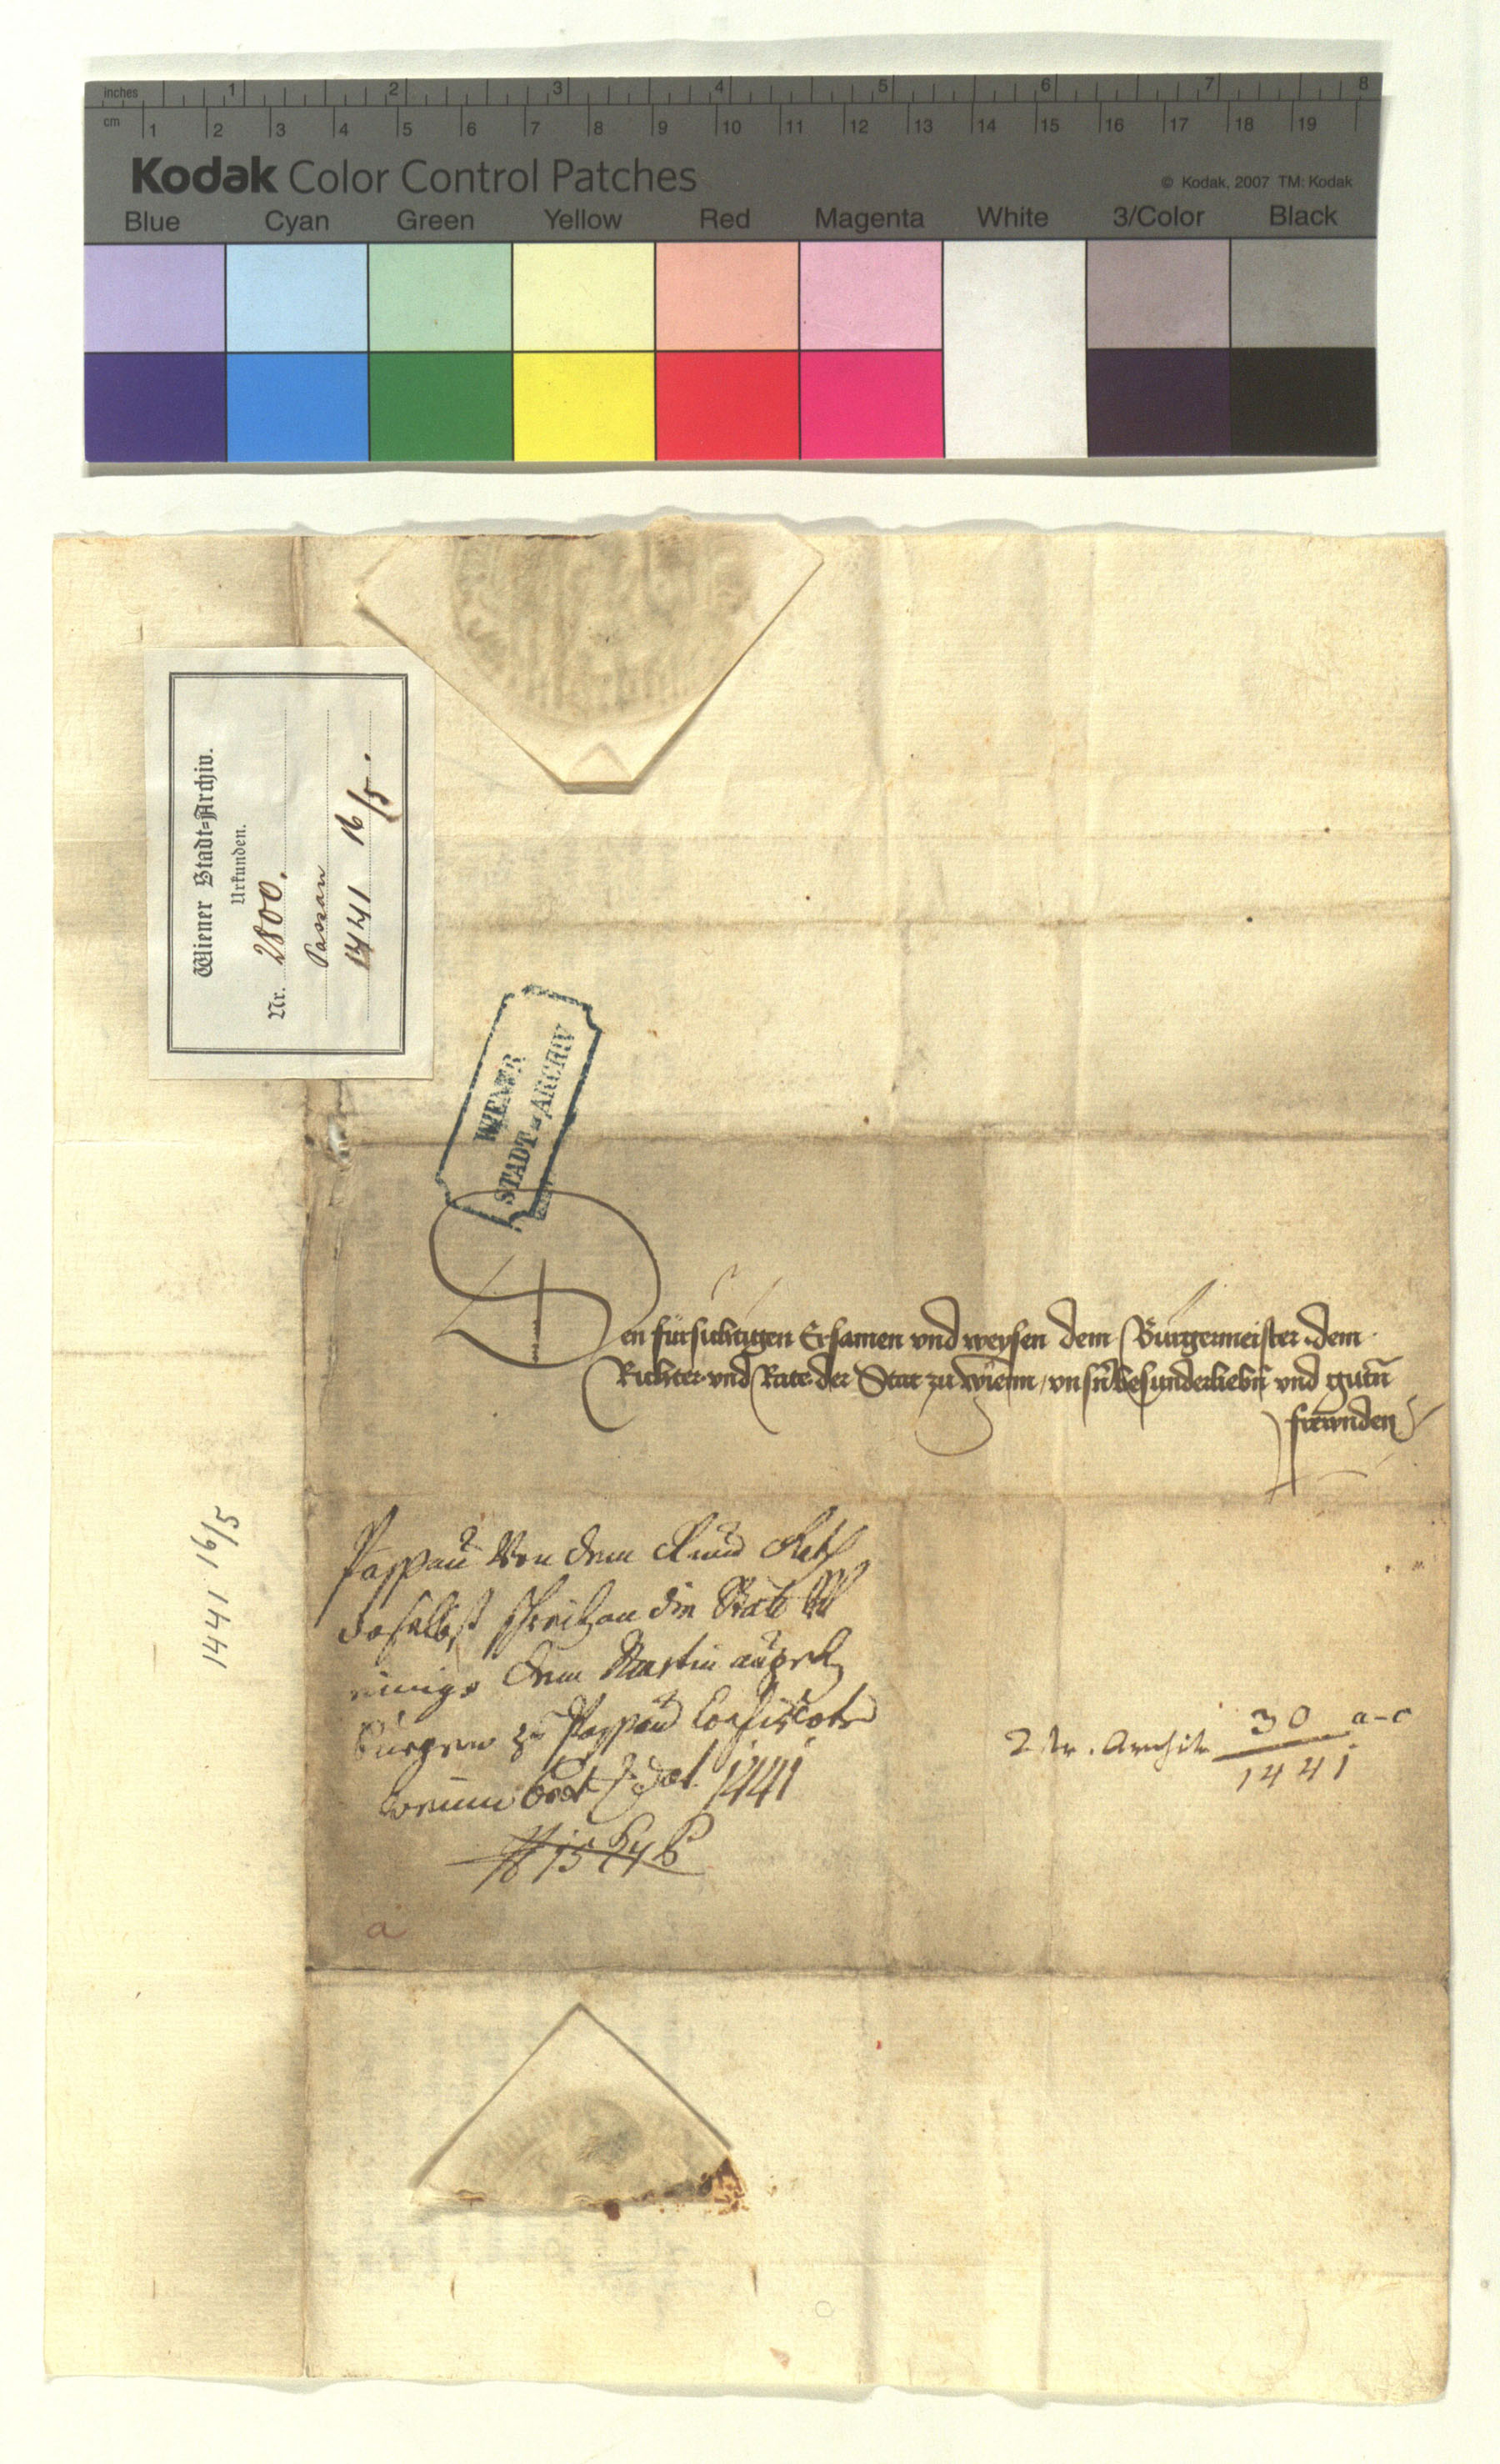 inches 1 2 3 4 5 6 7 8
cm 1 2 3 4 5 6 7 8 9 10 11 12 13 14 15 16 17 18 19
Kodak Color Control Patches
© Kodak, 2007 TM: Kodak
Blue Cyan Green Yellow Red Magenta White 3/Color Black
Wiener Stadt-Archiv.
Urkunden.
Nr. 2800.
Passau
1441 16/5.
WIENER
STADT-ARCHIV
Den fürsichtigen Ersamen vnd weysen dem Burgermeister dem
Richter vnd Rate der Stat zu Wienn / vnsn̄ besunderliebn̄ vnd gutn̄
frewnden
1441 16/5
Passau Von dem Rath
daselbst an die Statt
einige dem Martin
Burgern zu Passau Confiscate
1441
a
2 Nr. Archiv 30 a-c
1441